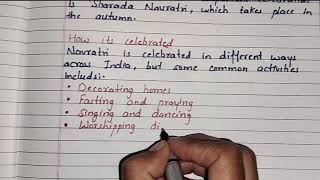 is Sharada Navratri, which takes place in
the autumn.
How its celebrated
Navratri is celebrated in different ways
across India, but some common activities
includs:-
• Decorating homes
• Fasting and praying
• Singing and dancing
• Worshipping di